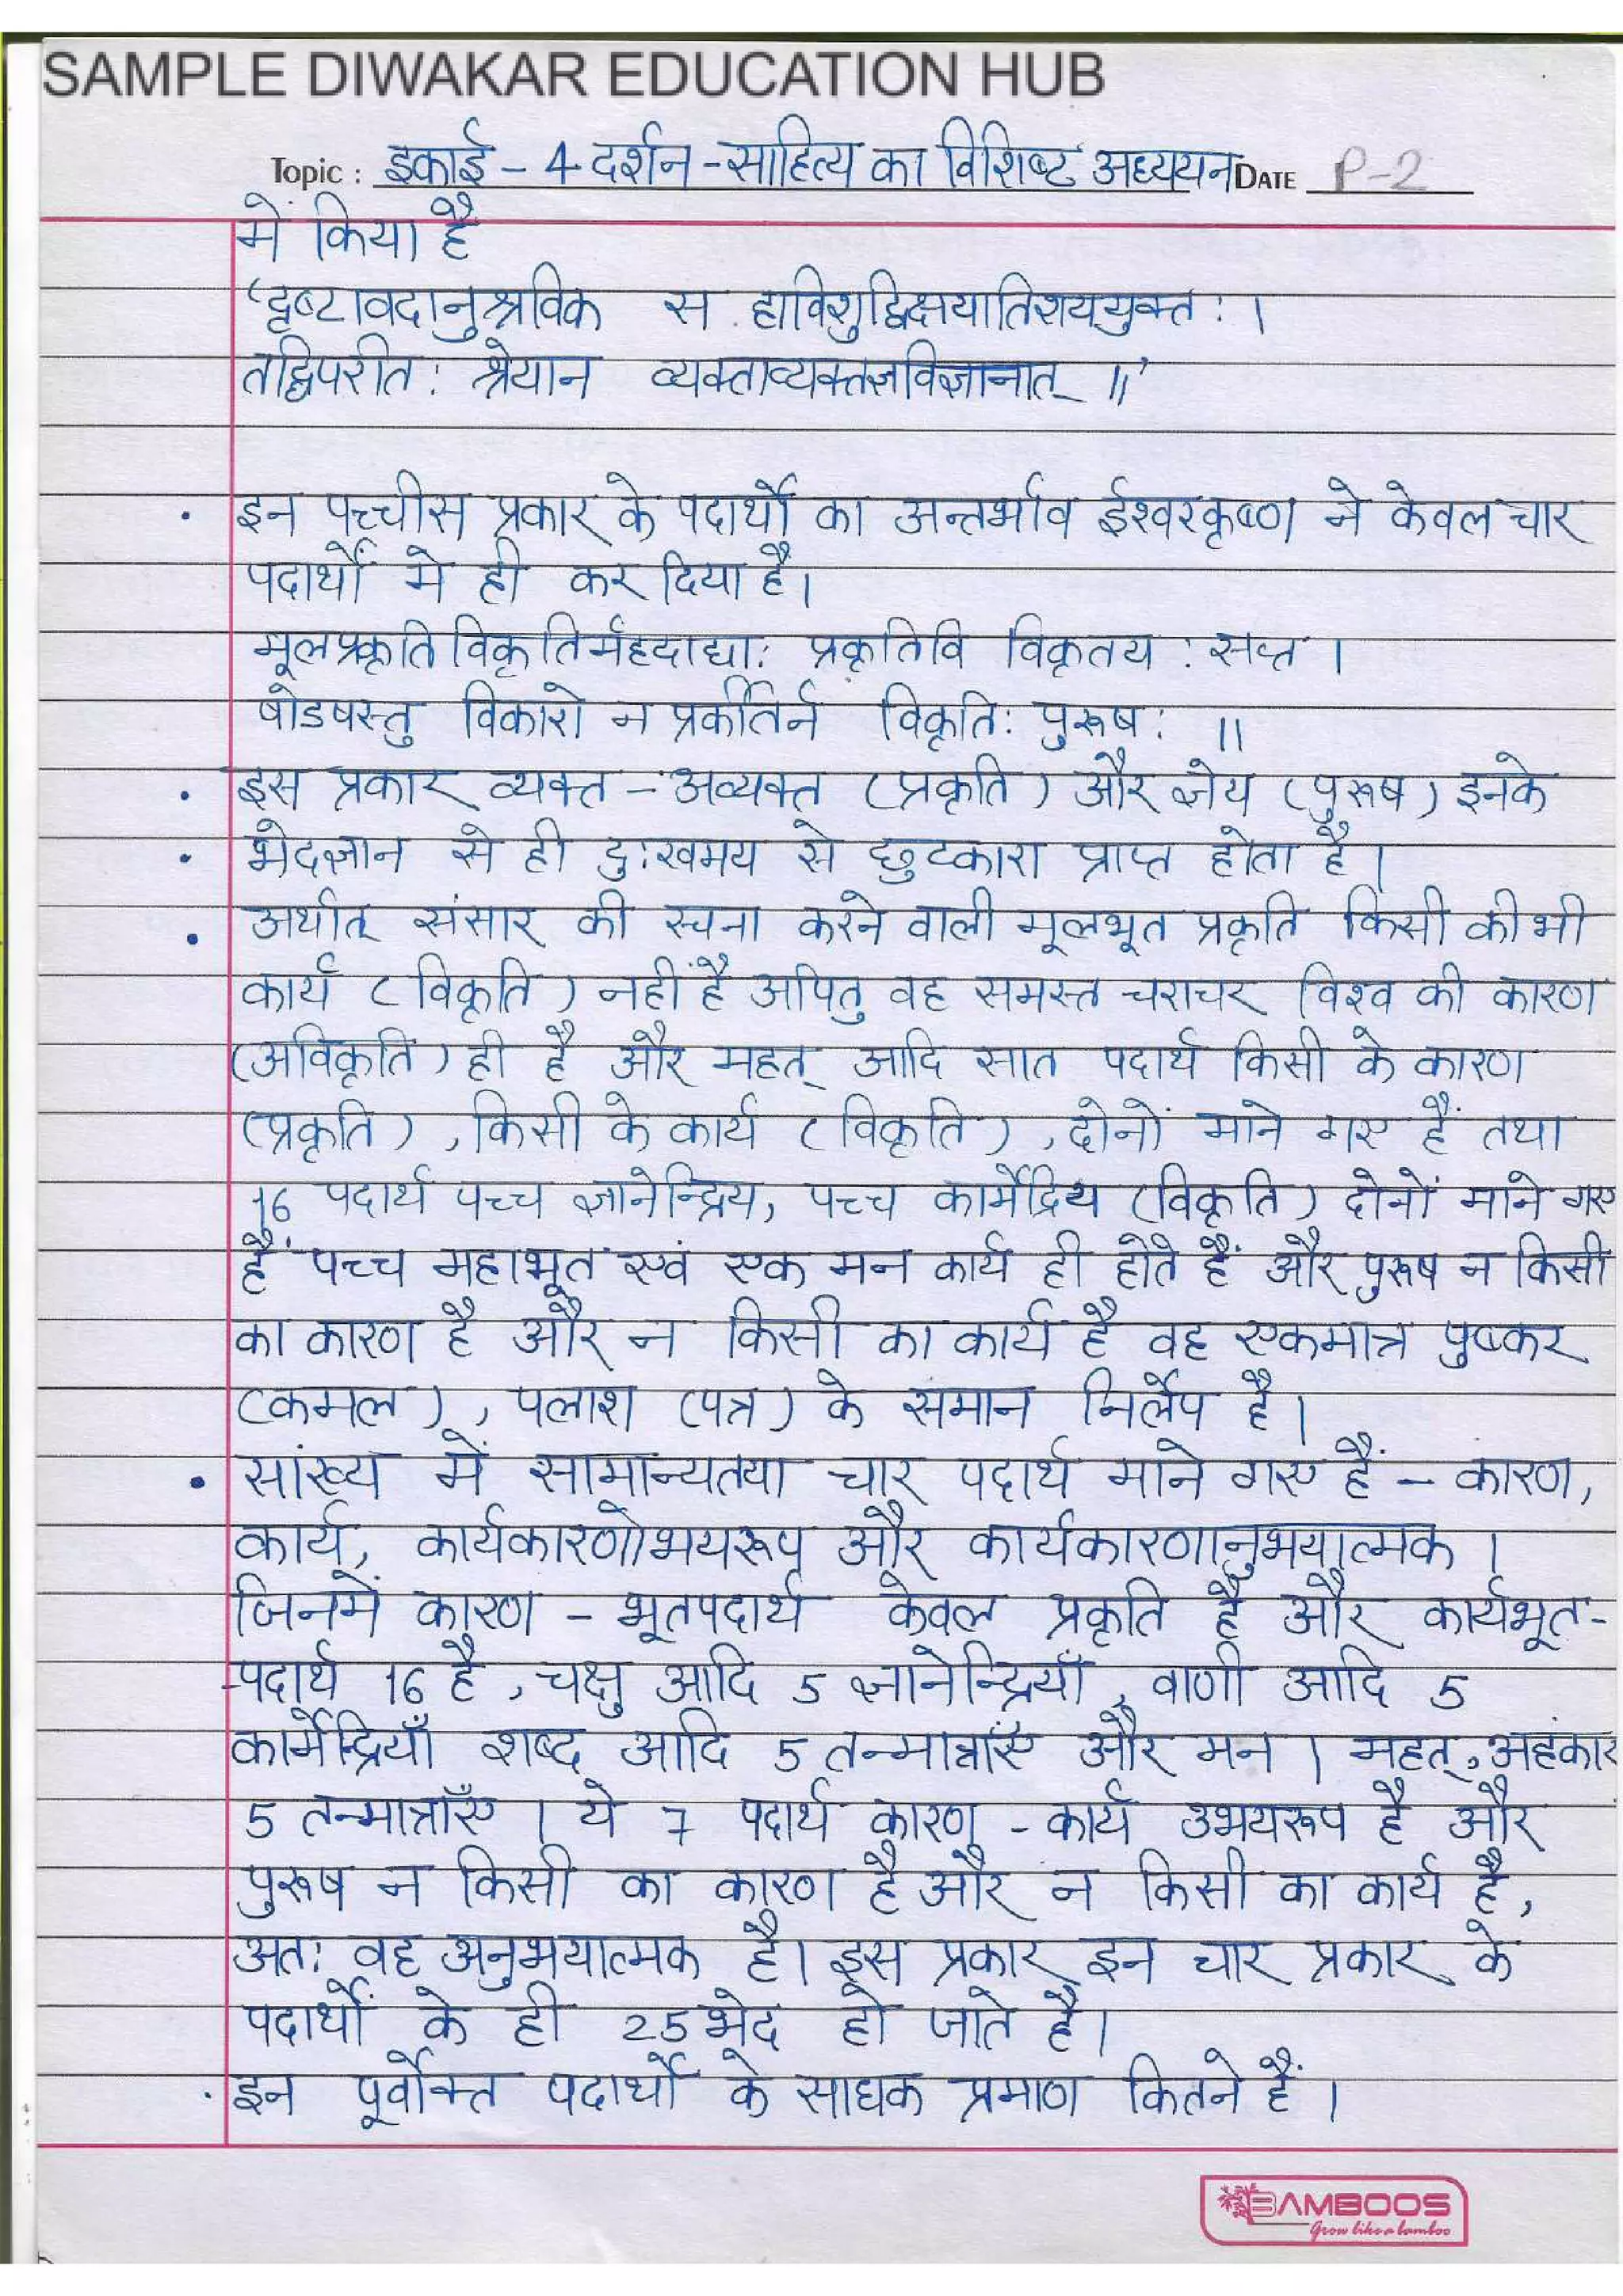 SAMPLE DIWAKAR EDUCATION HUB
Topic : इकाई - 4 दर्शन - साहित्य का विशिष्ट अध्ययन DATE P-2
में किया है
'दृष्टावदानुश्रविक स ह्यविशुद्धिक्षयातिशययुक्त: ।
तद्विपरीत: श्रेयान व्यक्ताव्यक्तज्ञविज्ञानात् ॥'
. इन पच्चीस प्रकार के पदार्थों का अन्तर्भाव ईश्वरकृष्ण ने केवल चार
पदार्थों मे ही कर दिया है।
मूलप्रकृतिविकृतिर्महदाद्या: प्रकृतिवि विकृतय : सप्त ।
षोडषस्तु विकारो न प्रर्कीतिर्न विकृति: पुरूष: ॥
. इस प्रकार व्यक्त - अव्यक्त (प्रकृति) और ज्ञेय (पुरूष) इनके
. भेदज्ञान से ही दु:खमय से छुटकारा प्राप्त होता है।
. अर्थात् संसार की रचना करने वाली मूलभूत प्रकृति किसी की भी
कार्य (विकृति) नहीं है अपितु वह समस्त चराचर विश्व की कारण
(अविकृति) ही है और महत् आदि सात पदार्थ किसी के कारण
(प्रकृति), किसी के कार्य (विकृति), दोनों माने गए हैं तथा
16 पदार्थ पच्च ज्ञानेन्द्रिय, पच्च कार्मेद्रिय (विकृति) दोनों माने गए
हैं पच्च महाभूत एवं एक मन कार्य ही होते हैं और पुरूष न किसी
का कारण है और न किसी का कार्य है वह एकमात्र पुष्कर
(कमल), पलाश (पत्र) के समान निर्लेप है।
. सांख्य में सामान्यतया चार पदार्थ माने गए हैं - कारण,
कार्य, कार्यकारणोभयरूप और कार्यकारणानुभयात्मक ।
जिनमें कारण - भूतपदार्थ केवल प्रकृति है और कार्यभूत-
पदार्थ 16 है, चक्षु आदि 5 ज्ञानेन्द्रियाँ, वाणी आदि 5
कार्मेद्रियाँ शब्द आदि 5 तन्मात्राएँ और मन । महत्, अहंकार
5 तन्मात्राएँ । ये 7 पदार्थ कारण - कार्य उभयरूप है और
पुरूष न किसी का कारण है और न किसी का कार्य है,
अत: वह अनुभयात्मक है। इस प्रकार इन चार प्रकार के
पदार्थों के ही 25 भेद हो जाते है।
. इन पूर्वोक्त पदार्थों के साधक प्रमाण कितने हैं ।
BAMBOOS
Grow like a bamboo